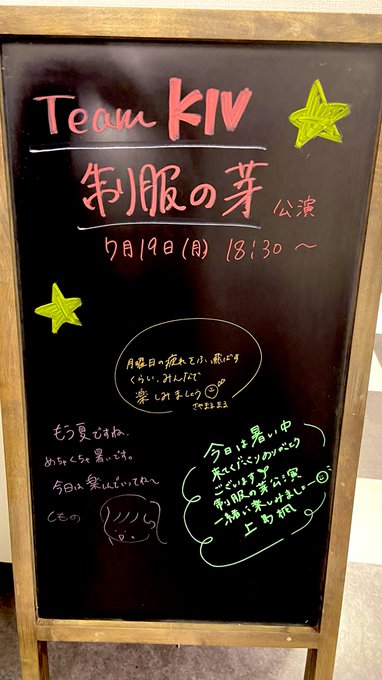 Team KIV
制服の芽 公演
7月19日(月) 18:30〜
月曜日の疲れをふっ飛ばす
くらい、みんなで
楽しみましょう
もう夏ですね、
めちゃくちゃ暑いです。
今日は楽しんでいってね〜
しもの
今日は暑い中
来てくださりありがとう
ございます
制服の芽公演
一緒に楽しみましょー
上島楓